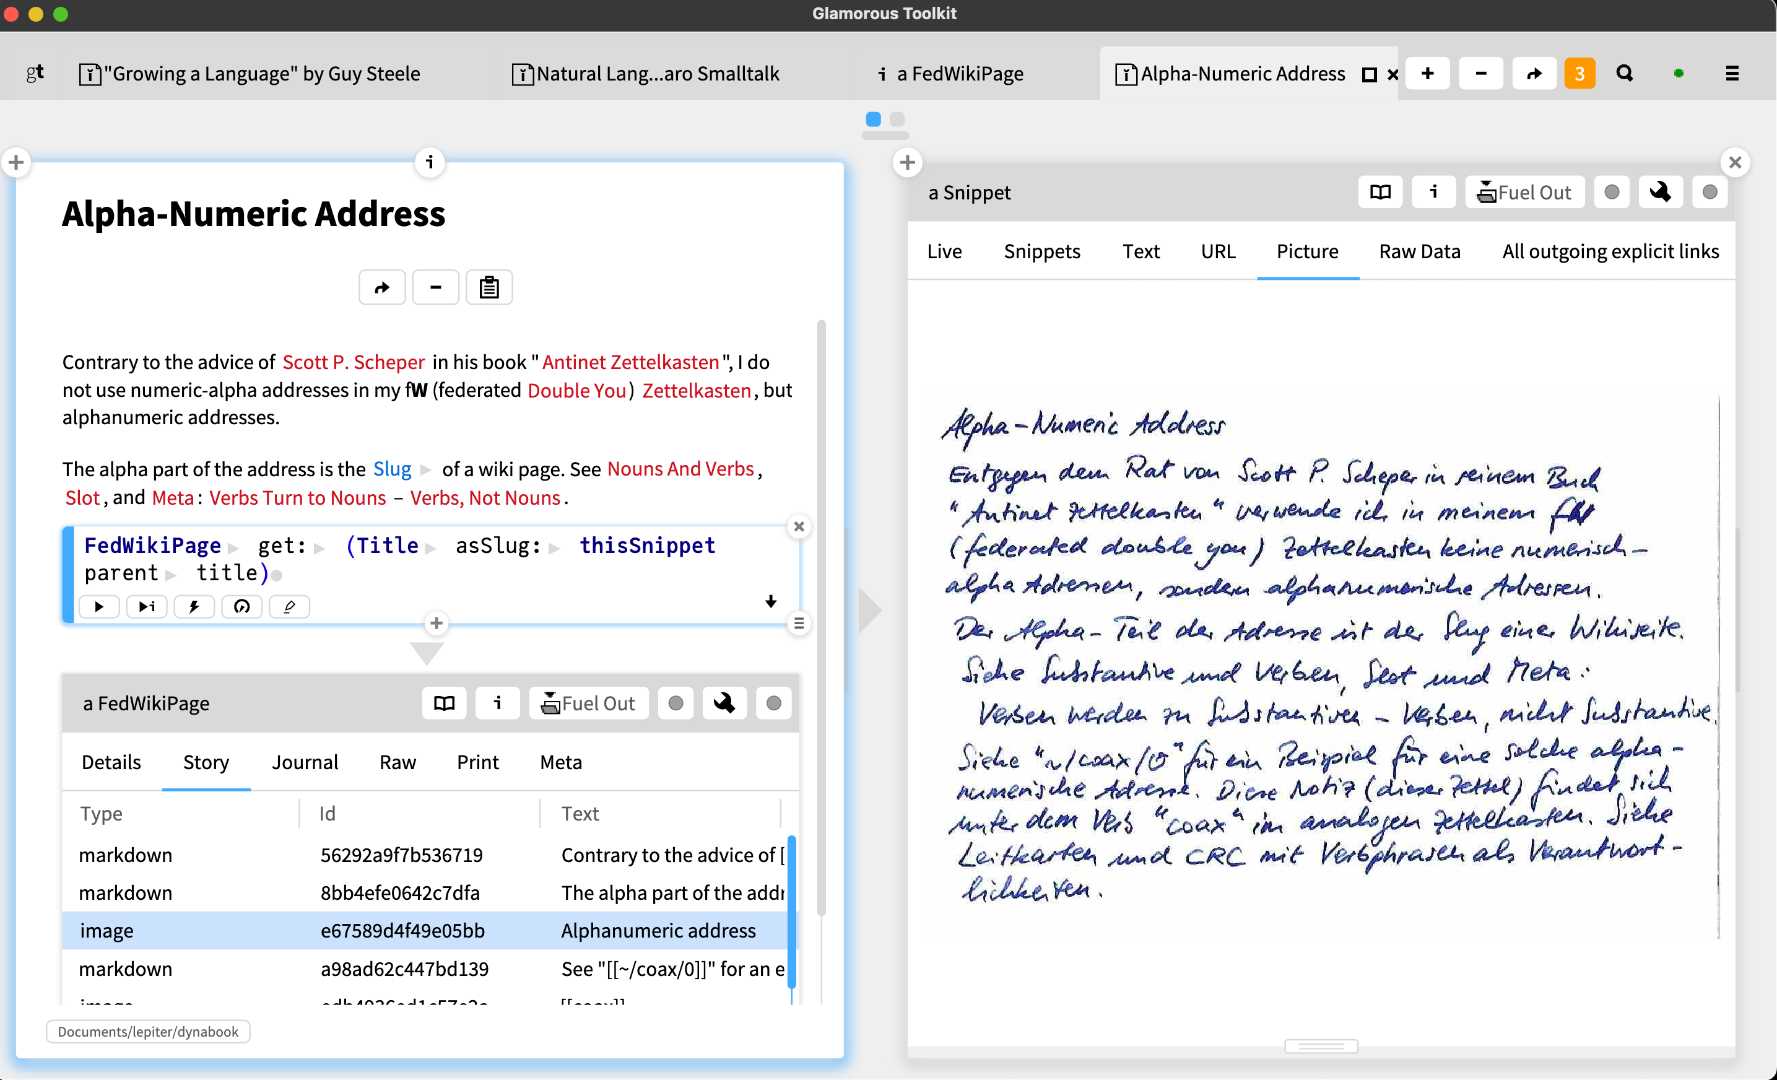 Glamorous Toolkit
gt
"Growing a Language" by Guy Steele
Natural Lang...aro Smalltalk
i a FedWikiPage
Alpha-Numeric Address
3
Alpha-Numeric Address
Contrary to the advice of Scott P. Scheper in his book "Antinet Zettelkasten", I do
not use numeric-alpha addresses in my fW (federated Double You) Zettelkasten, but
alphanumeric addresses.
The alpha part of the address is the Slug of a wiki page. See Nouns And Verbs,
Slot, and Meta: Verbs Turn to Nouns – Verbs, Not Nouns.
FedWikiPage get: (Title asSlug: thisSnippet
parent title)
a FedWikiPage
i
Fuel Out
Details Story Journal Raw Print Meta
Type Id Text
markdown 56292a9f7b536719 Contrary to the advice of [
markdown 8bb4efe0642c7dfa The alpha part of the addr
image e67589d4f49e05bb Alphanumeric address
markdown a98ad62c447bd139 See "[[~/coax/0]]" for an e
Documents/lepiter/dynabook
a Snippet
i
Fuel Out
Live Snippets Text URL Picture Raw Data All outgoing explicit links
Alpha-Numeric Address
Entgegen dem Rat von Scott P. Scheper in seinem Buch
"Antinet Zettelkasten" verwende ich in meinem fW
(federated double you) Zettelkasten keine numerisch-
alpha Adressen, sondern alphanumerische Adressen.
Der Alpha-Teil der Adresse ist der Slug einer Wikiseite.
Siehe Substantive und Verben, Slot und Meta:
Verben werden zu Substantiven – Verben, nicht Substantive.
Siehe "~/coax/0" für ein Beispiel für eine solche alpha-
numerische Adresse. Diese Notiz (dieser Zettel) findet sich
unter dem Verb "coax" im analogen Zettelkasten. Siehe
Leitkarten und CRC mit Verbphrasen als Verantwort-
lichkeiten.